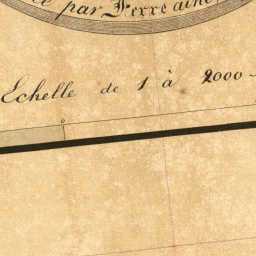 par Ferre ainé
Echelle de 1 à 2000